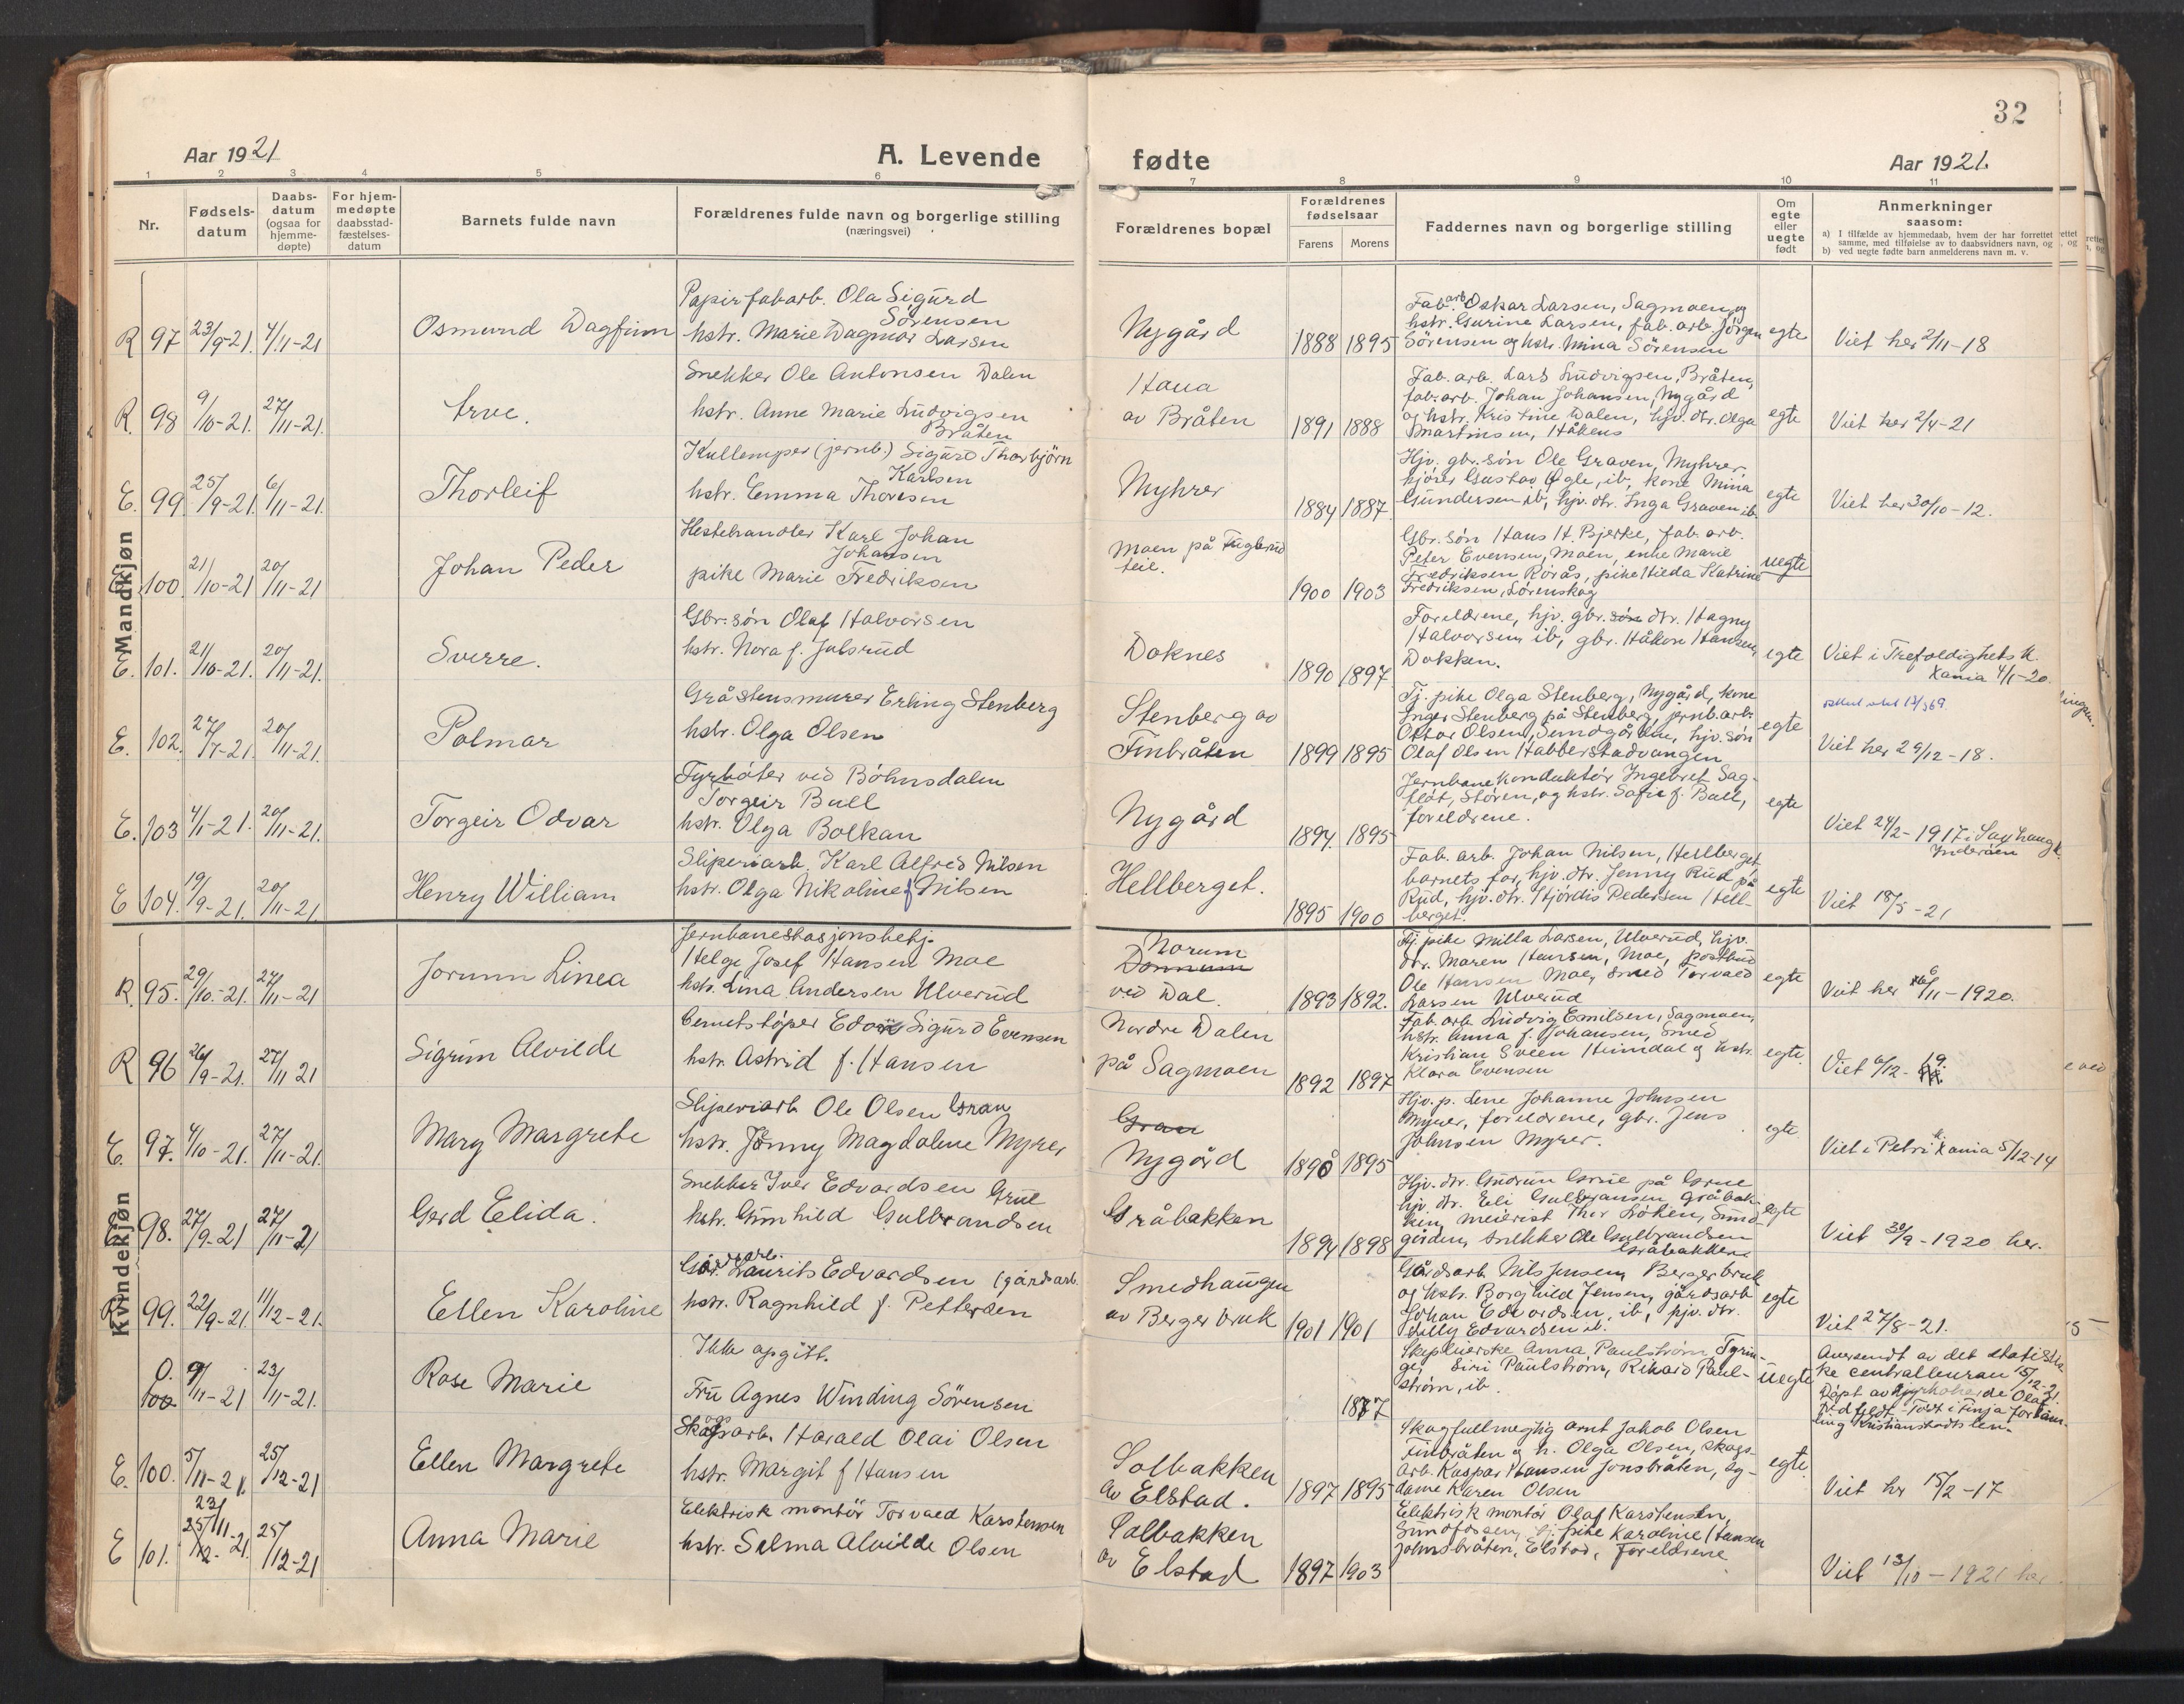 32
Aar 1921
A. Levende
fødte
Aar 1921
1
2
3
4
5
6
7
8
9
10
11
Nr.
Fødsels-
datum
Daabs-
datum
(ogsaa for
hjemme-
døpte)
For hjem-
medøpte
daabsstad-
fæstelses-
datum
Barnets fulde navn
Forældrenes fulde navn og borgerlige stilling
(næringsvei)
Forældrenes bopæl
Forældrenes
fødselsaar
Farens
Morens
Faddernes navn og borgerlige stilling
Om
egte
eller
uegte
født
Anmerkninger
saasom:
a) I tilfælde av hjemmedaab, hvem der har forrettet
samme, med tilføielse av to daabsvidners navn, og
b) ved uegte fødte barn anmelderens navn m. v.
Mandkjøn
R 97 23/9-21. 4/11-21
Osmund Dagfinn
Papirfabarb. Ola Sigurd
Sörensen
hstr. Marie Dagmar Larsen
Nygård
1888 1895
Fab.arb. Oskar Larsen, Sagmoen, og
hstr. Gurine Larsen, fab. arb. Jörgen
Sörensen og hstr. Mina Sörensen
egte
Viet her 2/11-18
R. 98 9/10-21. 27/11-21.
Arve.
Snekker Ole Antonsen Dalen
hstr. Anne Marie Ludvigsen
Bråten
Haua
av Bråten
1891 1888
Fab. arb. Lars Ludvigsen, Bråten,
fab.arb. Johan Johansen, Nygård
og hstr. Kristine Dalen, hjv. dtr. Olga
Martinsen, Håkens
egte
Viet her 2/4-21
E. 99. 25/9-21. 6/11-21.
Thorleif
Kullemper (jernb.) Sigurd Thorbjörn
Karlsen
hstr. Emma Thoresen
Myhrer
1884 1887.
Hjv. gbr. sön Ole Graven, Myhrer,
kjörer Gustav Ögle, ib, kone Mina
Gundersen ib, hjv. dtr. Inga Graven ib.
egte
Viet her 30/10-12.
E. 100. 21/10-21 20/11-21
Johan Peder
Hestehandler Karl Johan
Johansen
pike Marie Fredriksen
Moen på Fuglerud
teie.
1900 1903
Gbr. sön Hans H. Bjerke, fab. arb.
Peter Evensen, Moen, enke Marie
Fredriksen Rörås, pike Hilda Katrine
Fredriksen, Lörenskog
uegte
E. 101. 21/10-21. 20/11-21.
Sverre.
Gbr. sön Olaf Halvorsen
hstr. Nora f. Julsrud
Doknes
1890 1897
Foreldrene, hjv. gbr. sön dtr. Hagny
Halvorsen, ib, gbr. Håkon Hansen,
Dokken.
egte
Viet i Trefoldighets k.
Xania 4/1-20.
E. 102. 27/7-21. 20/11-21.
Polmar
Gråstensmurer Erling Stenberg
hstr. Olga Olsen
Stenberg av
Finbråten
1899 1895
Tj. pike Olga Stenberg, Nygård, kone
Inger Stenberg på Stenberg, jernb.arb.
Oskar Olsen, Sundgårdene, hjv. sön
Olaf Olsen Habberstadvangen
egte
Viet her 29/12-18.
E. 103 4/1-21. 20/11-21.
Torgeir Odvar
Fyrböter ved Böhnsdalen
Torgeir Bull
hstr. Olga Bolkan
Nygård
1894. 1895
Jernbanekonduktör Ingebret Sag-
flåt, Stören, og hstr. Sofie f. Bull,
foreldrene.
egte
Viet 24/2-1917 i Saxhaug k.
Inderöen
E 104. 19/9-21. 20/11-21
Henry William
Sliperiarb. Karl Alfred Nilsen
hstr. Olga Nikoline f Nilsen
Hellberget.
1895 1900
Fab. arb. Johan Nilsen, Hellberget,
barnets far, hjv. dtr. Jenny Rud på
Rud, hjv. dtr. Hjördis Pedersen Hell-
berget.
egte
Viet 18/5-21
Kvindekjøn
R. 95. 29/10.-21. 27/11-21
Jorunn Linea
Jernbanestasjonsbetj.
Helge Josef Hansen Moe
hstr. Lina Andersen Ulverud
Norum
Donnum
ved Dal.
1893 1892.
Tj. pike Milla Larsen, Ulverud, hjv.
dtr. Maren Hansen, Moe, postbud
Ole Hansen Moe, smed Torvald
Larsen Ulverud
egte
Viet her /11-1920.
R 96 26/9-21. 27/11 21
Sigrun Alvilde
Cementstöper Edvard Sigurd Evensen
hstr. Astrid f. Hansen
Nordre Dalen
på Sagmoen
1892 1897
Fab. arb. Ludvig Emilsen, Sagmoen,
hstr. Anna f. Johansen, smed
Kristian Sveen Heimdal og hstr.
Klara Evensen
egte.
Viet 6/12-19.
E. 97. 4/10-21. 27/11-21.
Mary Margrete
Sliperiarb. Ole Olsen Gran
hstr. Jenny Magdalene Myrer
Gran
Nygård
1890 1895
Hjv. p. Lene Johanne Johnsen
Myrer, foreldrene, gbr. Jens
Johnsen Myrer.
egte
Viet i Petri k. Xania 5/12-14
E. 98. 27/9-21 27/11-21
Gerd Elida.
Snekker Iver Edvardsen Grue
hstr. Gunhild Gulbrandsen
Gråbakken
1894 1898
Hjv. dtr. Gudrun Grue på Grue
hjv. dtr. Eli Gulbransen Gråbak-
ken, meierist Thor Löken, Sund-
gården, snekker Ole Gulbrandsen
Gråbakken
egte
Viet 30/9-1920 her.
R. 99. 22/9-21. 11/12-21.
Ellen Karoline
Gårdsarb. Laurits Edvardsen (gårdsarb.
hstr. Ragnhild f. Pettersen
Smedhaugen
av Berger bruk
1901 1901
Gårdsarb. Nils Jensen, Berger bruk
og hstr. Borghild Jensen, gårdsarb
Johan Edvardsen, ib, hjv. dtr.
Lilly Edvardsen ib.
egte
Viet 27/8-21.
O. 100 9/11-21 23/11-21.
Rose Marie
Ikke opgitt.
Fru Agnes Winding Sörensen
1877
Anna Paulström Tyrin-
ge, Siri Paulström, Rikard Paul-
ström, ib.
uegte
Oversendt av det statisti-
ke centralbureau 15/12-21.
Döpt av kyrkoherde Olof
Födt i Finja försam-
ling Kristianstads len.
E. 100. 5/11-21. 25/12-21
Ellen Margrete
Skogsarb. Harald Olai Olsen
hstr. Margit f Hansen
Solbakken
av Elstad.
1897 1895
Skogfullmegtig Arnt Jakob Olsen
Finbråten og h. Olga Olsen, skogs-
arb. Kaspar Hansen Jonsbråten, sy-
dame Karen Olsen
egte.
Viet her 15/2-17
E 101. 23/11 25/12-21. 25/12-21
Anna Marie
Elektrisk montör Torvald Karstensen
hstr. Selma Alvilde Olsen
Solbakken
av Elstad
1897 1903
Elektrisk montör Olaf Karstensen,
Sundfossen, tj. pike Karoline Hansen
Johnsbråten, Elstad, foreldrene
Viet 13/10-1921 her